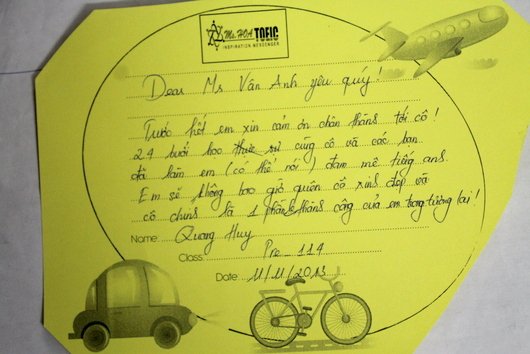 Ms. HOA TOEIC
INSPIRATION MESSENGER
Dear Ms Vân Anh yêu quý!
Trước hết em xin cảm ơn chân thành tới cô!
24 buổi học thực sự cùng cô và các bạn
đã làm em (có thể nói) đam mê tiếng anh.
Em sẽ không bao giờ quên cô xinh đẹp và
cô chính là 1 phần thành công của em trong tương lai!
Name: Quang Huy
Class: Pre_114
Date: 11/11/2013